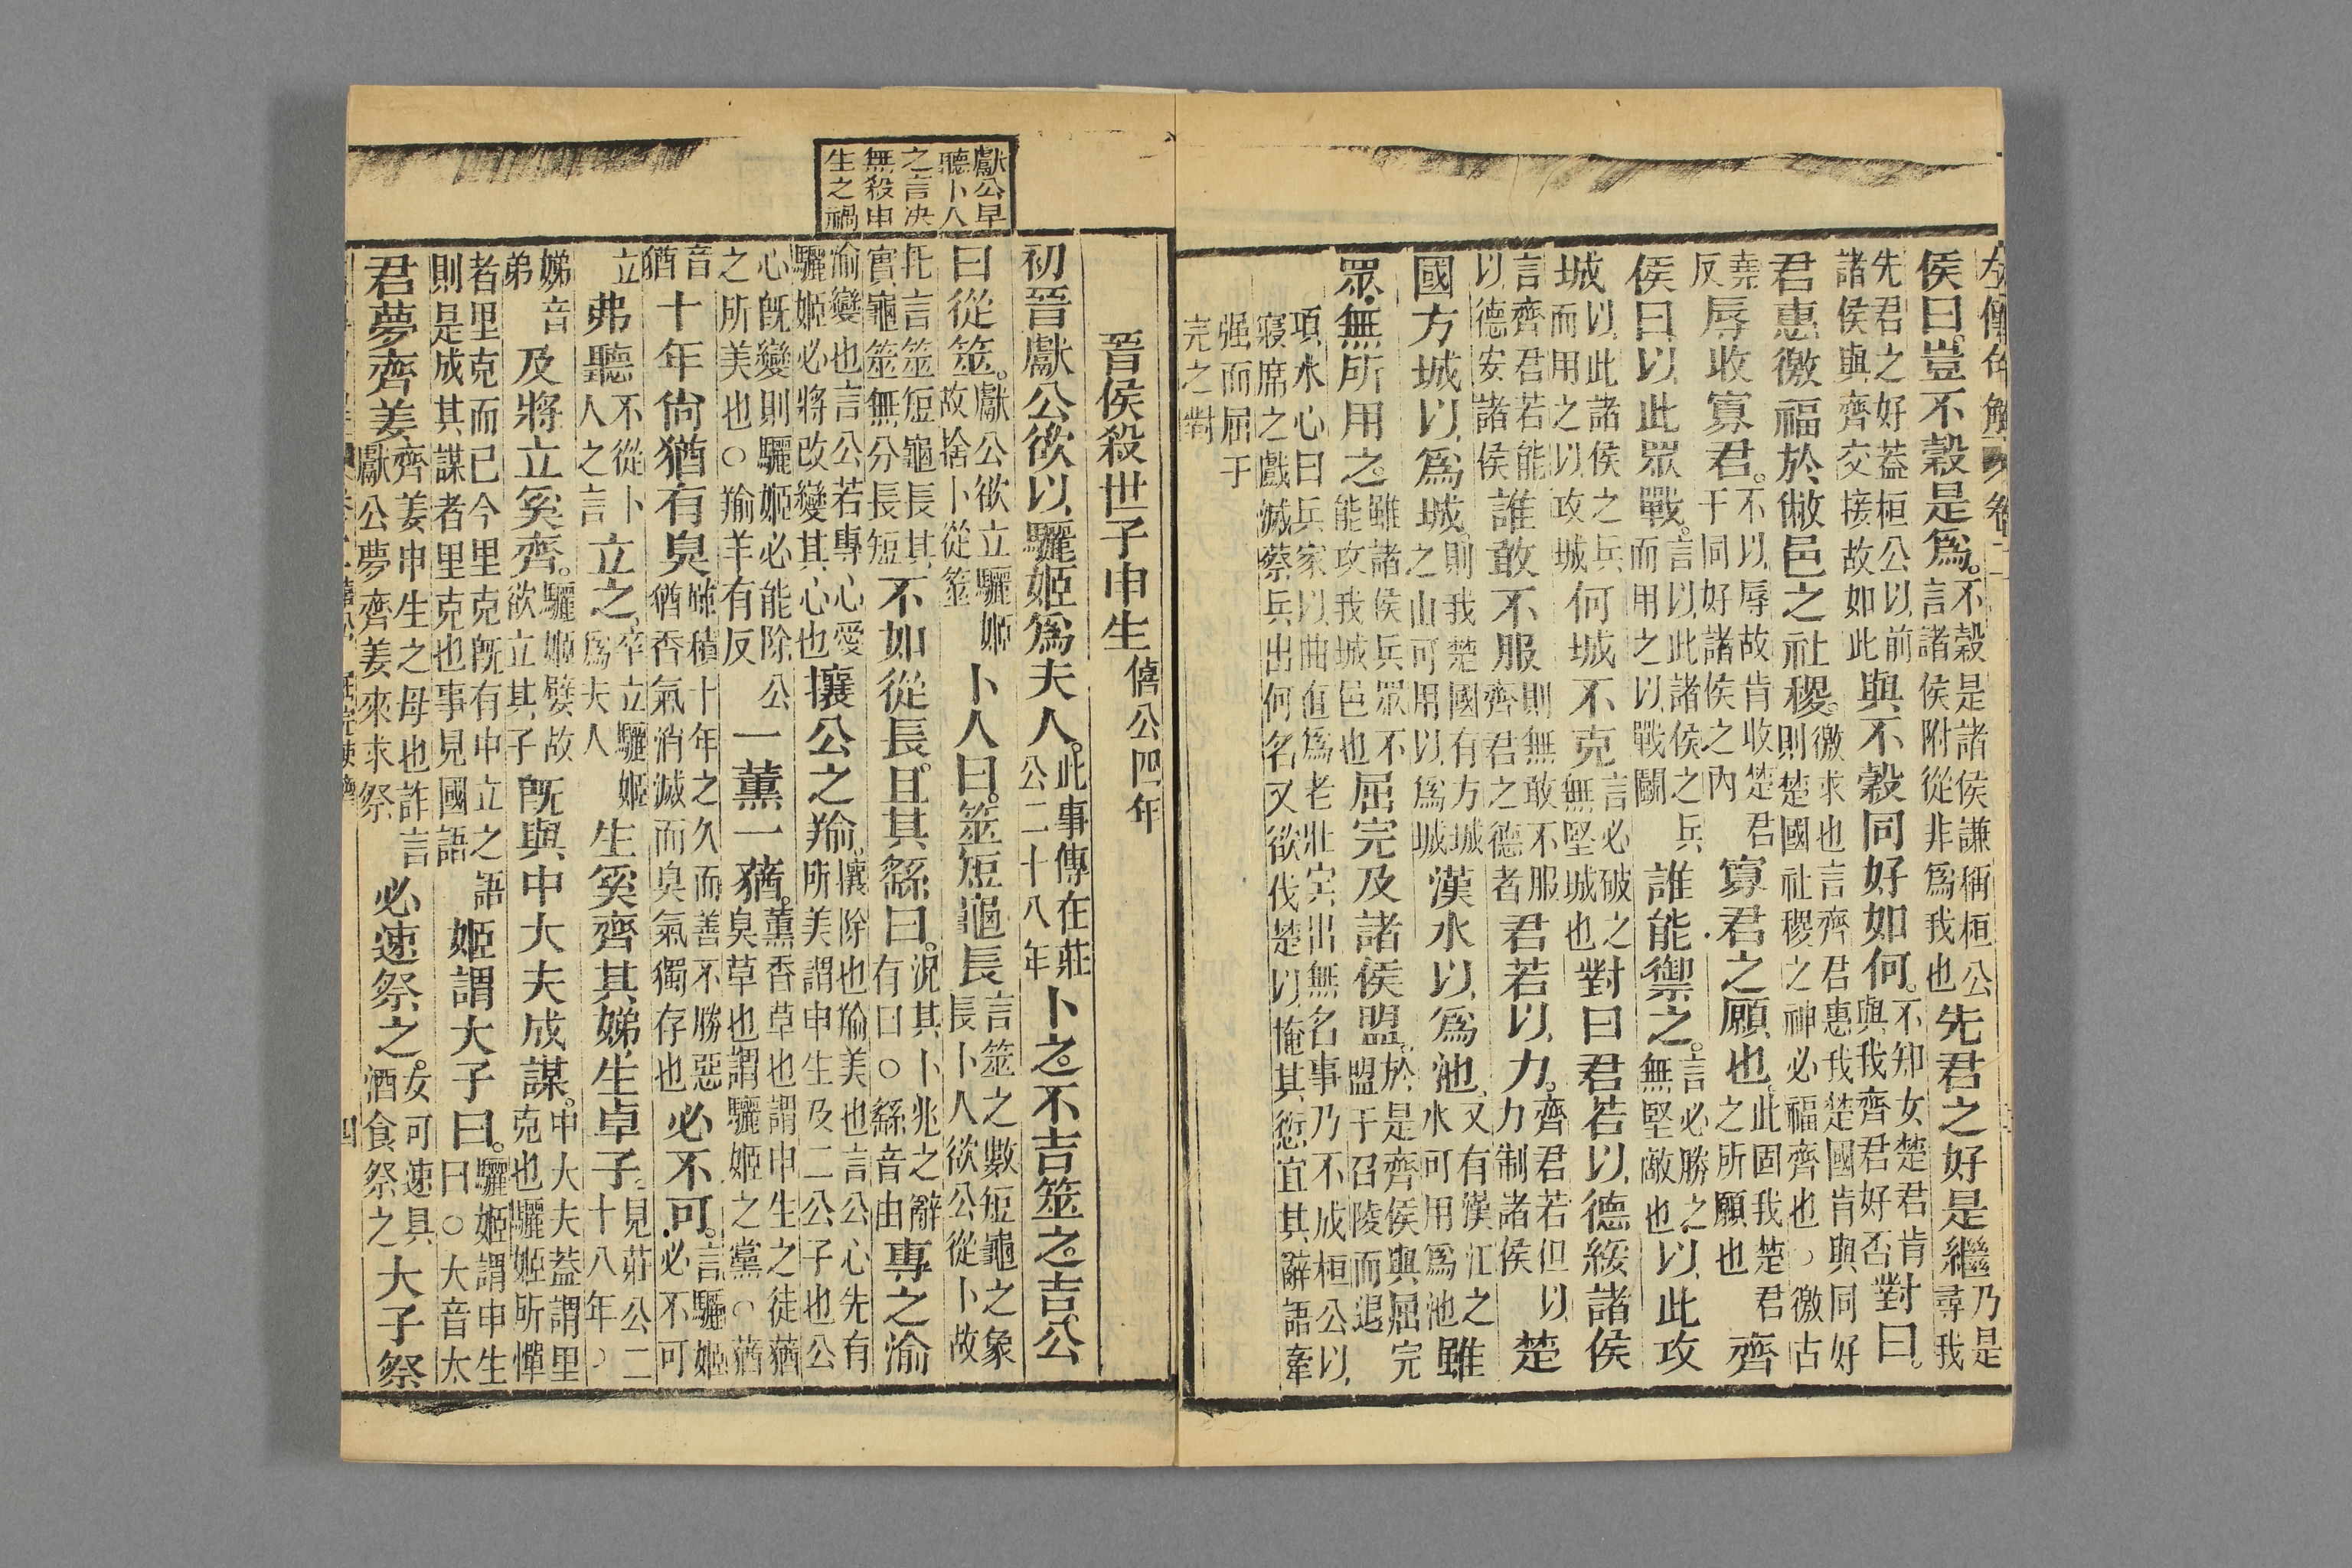 侯曰豈不穀是爲。不穀是諸侯謙稱桓公言諸侯附從非爲我也先君之好是繼乃是尋我
先君之好葢桓公以前諸侯與齊交接故如此與不穀同好如何。不知女楚君肯與我齊君好否對曰。
君惠徼福於敝邑之社稷。徼求也言齊君惠我楚國肯與同好則楚國社稷之神必福齊也○徼古
堯反辱收寡君。不以辱故肯收楚君于同好諸侯之內寡君之願也。此固我楚君之所願也齊
侯曰以此眾戰。言以此諸侯之兵而用之以戰鬭誰能禦之。言必勝之無堅敵也以此攻
城以此諸侯之兵而用之以攻城何城不克言必破之無堅城也對曰君若以德綏諸侯
言齊君若能以德安諸侯誰敢不服則無敢不服齊君之德者君若以力。齊君若但以力制諸侯楚
國方城以爲城。則我楚國有方城之山可用以爲城漢水以爲池。又有漢江之水可用爲池雖
眾無所用之。雖諸侯兵眾不能攻我城邑也屈完及諸侯盟。於是齊侯與屈完盟于召陵而退
項水心曰兵家以曲直爲老壯出無名事乃不成桓公以
寢席之戲滅蔡兵出何名又欲伐楚以掩其愆宜其辭語牽
强而屈于
完之對
獻公早
聽卜人
之言决
無殺申
生之禍
晉侯殺世子申生僖公四年
初晉獻公欲以驪姬爲夫人。此事傳在莊公二十八年卜之。不吉筮之。吉。公
曰從筮。獻公欲立驪姬故捨卜從筮卜人曰。筮短龜長言筮之數短龜之象長卜人欲公從卜故
托言筮短龜長其實龜筮無分長短不如從長。且其繇曰。況其卜兆之辭有曰○繇音由專之渝
渝變也言公若專心愛驪姬必將改變其心也攘公之羭。攘除也羭美也言公心先有所美謂申生及二公子也公
心既變則驪姬必能除公之所美也○羭羊有反一薰一蕕。薰香草也謂申生之徒蕕臭草也謂驪姬之黨○蕕
音猶十年尙猶有臭雖積十年之久而善不勝惡猶香氣消滅而臭氣獨存也必不可。言驪姬必不可
立弗聽不從卜人之言立之。卒立驪姬爲夫人生奚齊其娣生卓子。見莊公二十八年○
娣音弟及將立奚齊。驪姬嬖故欲立其子既與中大夫成謀。中大夫葢謂里克也驪姬所憚
者里克而已今里克既有中立之語則是成其謀者里克也事見國語姬謂大子曰。驪姬謂申生曰○大音太
君夢齊姜齊姜申生之母也詐言獻公夢齊姜來求祭必速祭之。女可速具酒食祭之大子祭